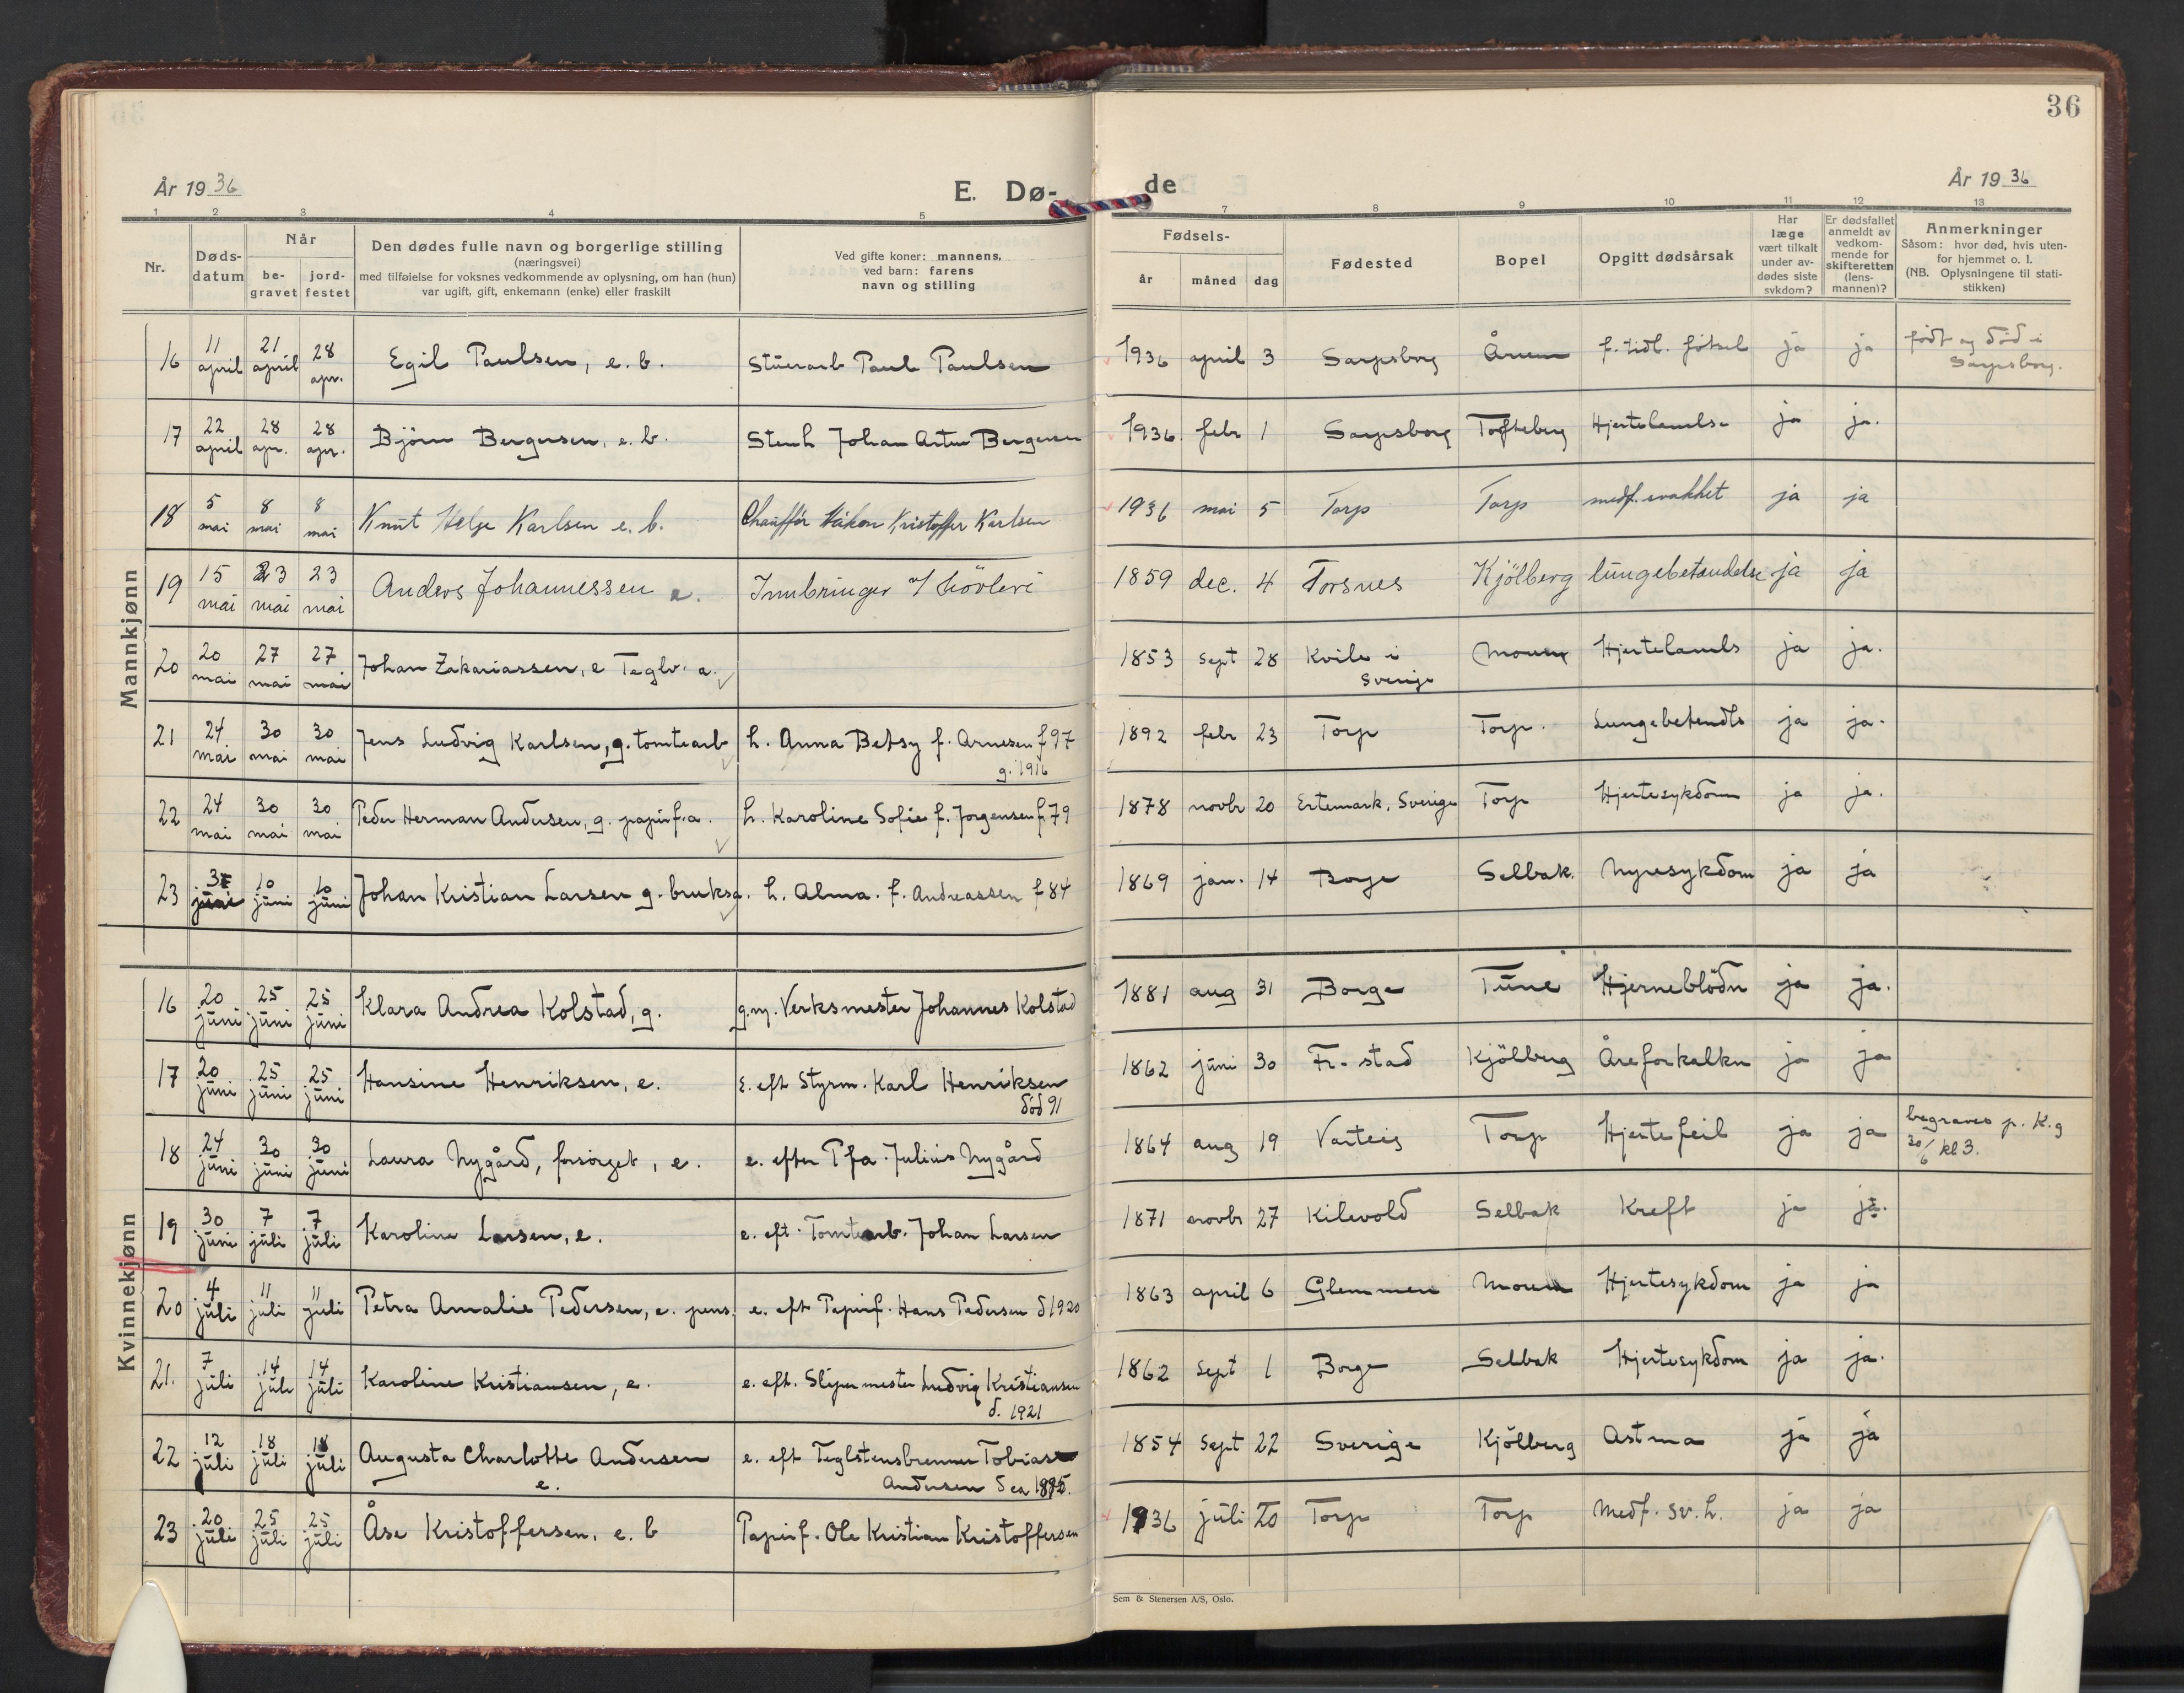 36
År 1936
E. Dø-
de
År 1936
1 2 3 4 5 7 8 9 10 11 12 13
Nr.
Døds-
datum
Når
be-
gravet
jord-
festet
Den dødes fulle navn og borgerlige stilling
(næringsvei)
med tilføielse for voksnes vedkommende av oplysning, om han (hun)
var ugift, gift, enkemann (enke) eller fraskilt
Ved gifte koner: mannens,
ved barn: farens
navn og stilling
Fødsels-
år måned dag
Fødested
Bopel
Opgitt dødsårsak
Har
læge
vært tilkalt
under av-
dødes siste
sykdom?
Er dødsfallet
anmeldt av
vedkom-
mende for
skifteretten
(lens-
mannen)?
Anmerkninger
Såsom: hvor død, hvis uten-
for hjemmet o. l.
(NB. Oplysningene til stati-
stikken)
Mannkjønn
16 11 april 21 april 28 apr. Egil Paulsen, e. b. Stuerarb Paul Paulsen 1936 april 3 Sarpsborg Årum f. tidl. fötsel ja ja födt og död i
Sarpsborg.
17 22 april 28 apr. 28 apr. Björn Bergersen, e. b. Stenh Johan Artur Bergersen 1936. febr 1 Sarpsborg Tofteberg Hjertelamelse ja ja.
18 5 mai 8 mai 8 mai Knut Helge Karlsen e. b. Chauffør Håkon Kristoffer Karlsen 1936 mai 5 Torp Torp medf. svakhet ja ja
19 15 mai 23 mai 23 mai Anders Johannessen e. Innbringer v/ høvleri 1859 dec. 4 Torsnes Kjölberg lungebetændelse ja ja
20 20 mai 27 mai 27 mai Johan Zakariassen, e Teglv. a. 1853 sept 28 Kvile i
Sverige Moum Hjertelamels ja ja.
21 24 mai 30 mai 30 mai Jens Ludvig Karlsen, g. tomtearb h. Anna Betsy f. Arnesen f 97
g. 1916 1892 febr 23 Torp Torp. Lungebetendls ja ja.
22 24 mai 30 mai 30 mai Peder Herman Andersen, g. papirf. a. h. Karoline Sofie f. Jorgensen f. 79 1878 novbr 20 Ertemark, Sverige Torp Hjertesykdom ja ja.
23 3 juni 10 juni 10 juni Johan Kristian Larsen g. bruksa. h. Alma. f. Andreassen f 84 1869 jan. 14 Borge Selbak. Nyresykdom ja ja
Kvinnekjønn
16 20 juni 25 juni 25 juni Klara Andrea Kolstad, g. g. m. Verksmester Johannes Kolstad 1881 aug 31 Borge Tune Hjerneblödn ja ja.
17 20 juni 25 juni 25 juni Hansine Henriksen, e. E. eft Styrm. Karl Henriksen
död 91 1862 juni 30 Fr. stad Kjölberg Åreforkalkn ja ja
18 24 juni 30 juni 30 juni Laura Nygård, forsörget, e. e. efter Pfa. Julius Nygård 1864 aug 19 Varteig Torp Hjertefeil ja ja begraves p. K. g
30/6 kl 3.
19 30 juni 7 juli 7 juli Karoline Larsen, e. e. eft. Tomtearb. Johan Larsen 1871 novbr 27 Kilevold Selbak Kreft ja ja.
20 4 juli 11 juli 11 juli Petra Amalie Pedersen, e. pens. e. eft Papirf. Hans Pedersen d 1920 1863 april 6 Glemmen Moum Hjertesykdom ja ja
21. 7 juli 14 juli 14 juli Karoline Kristiansen, e. e. eft. Slipermester Ludvig Kristiansen
d. 1921 1862 sept 1 Borge Selbak Hjertesykdom ja ja.
22 12 juli 18 juli 18 juli Augusta Charlotte Andersen
e. e. eft Teglstensbrenner Tobias
Andersen d ca 1895. 1854 sept 22 Sverige Kjölberg Astma ja ja
23 20 juli 25 juli 25 juli Åse Kristoffersen, e. b Papirf. Ole Kristian Kristoffersen 1936 juli 20 Torp Torp Medf. sv. h. ja ja
Sem & Stenersen A/S, Oslo.